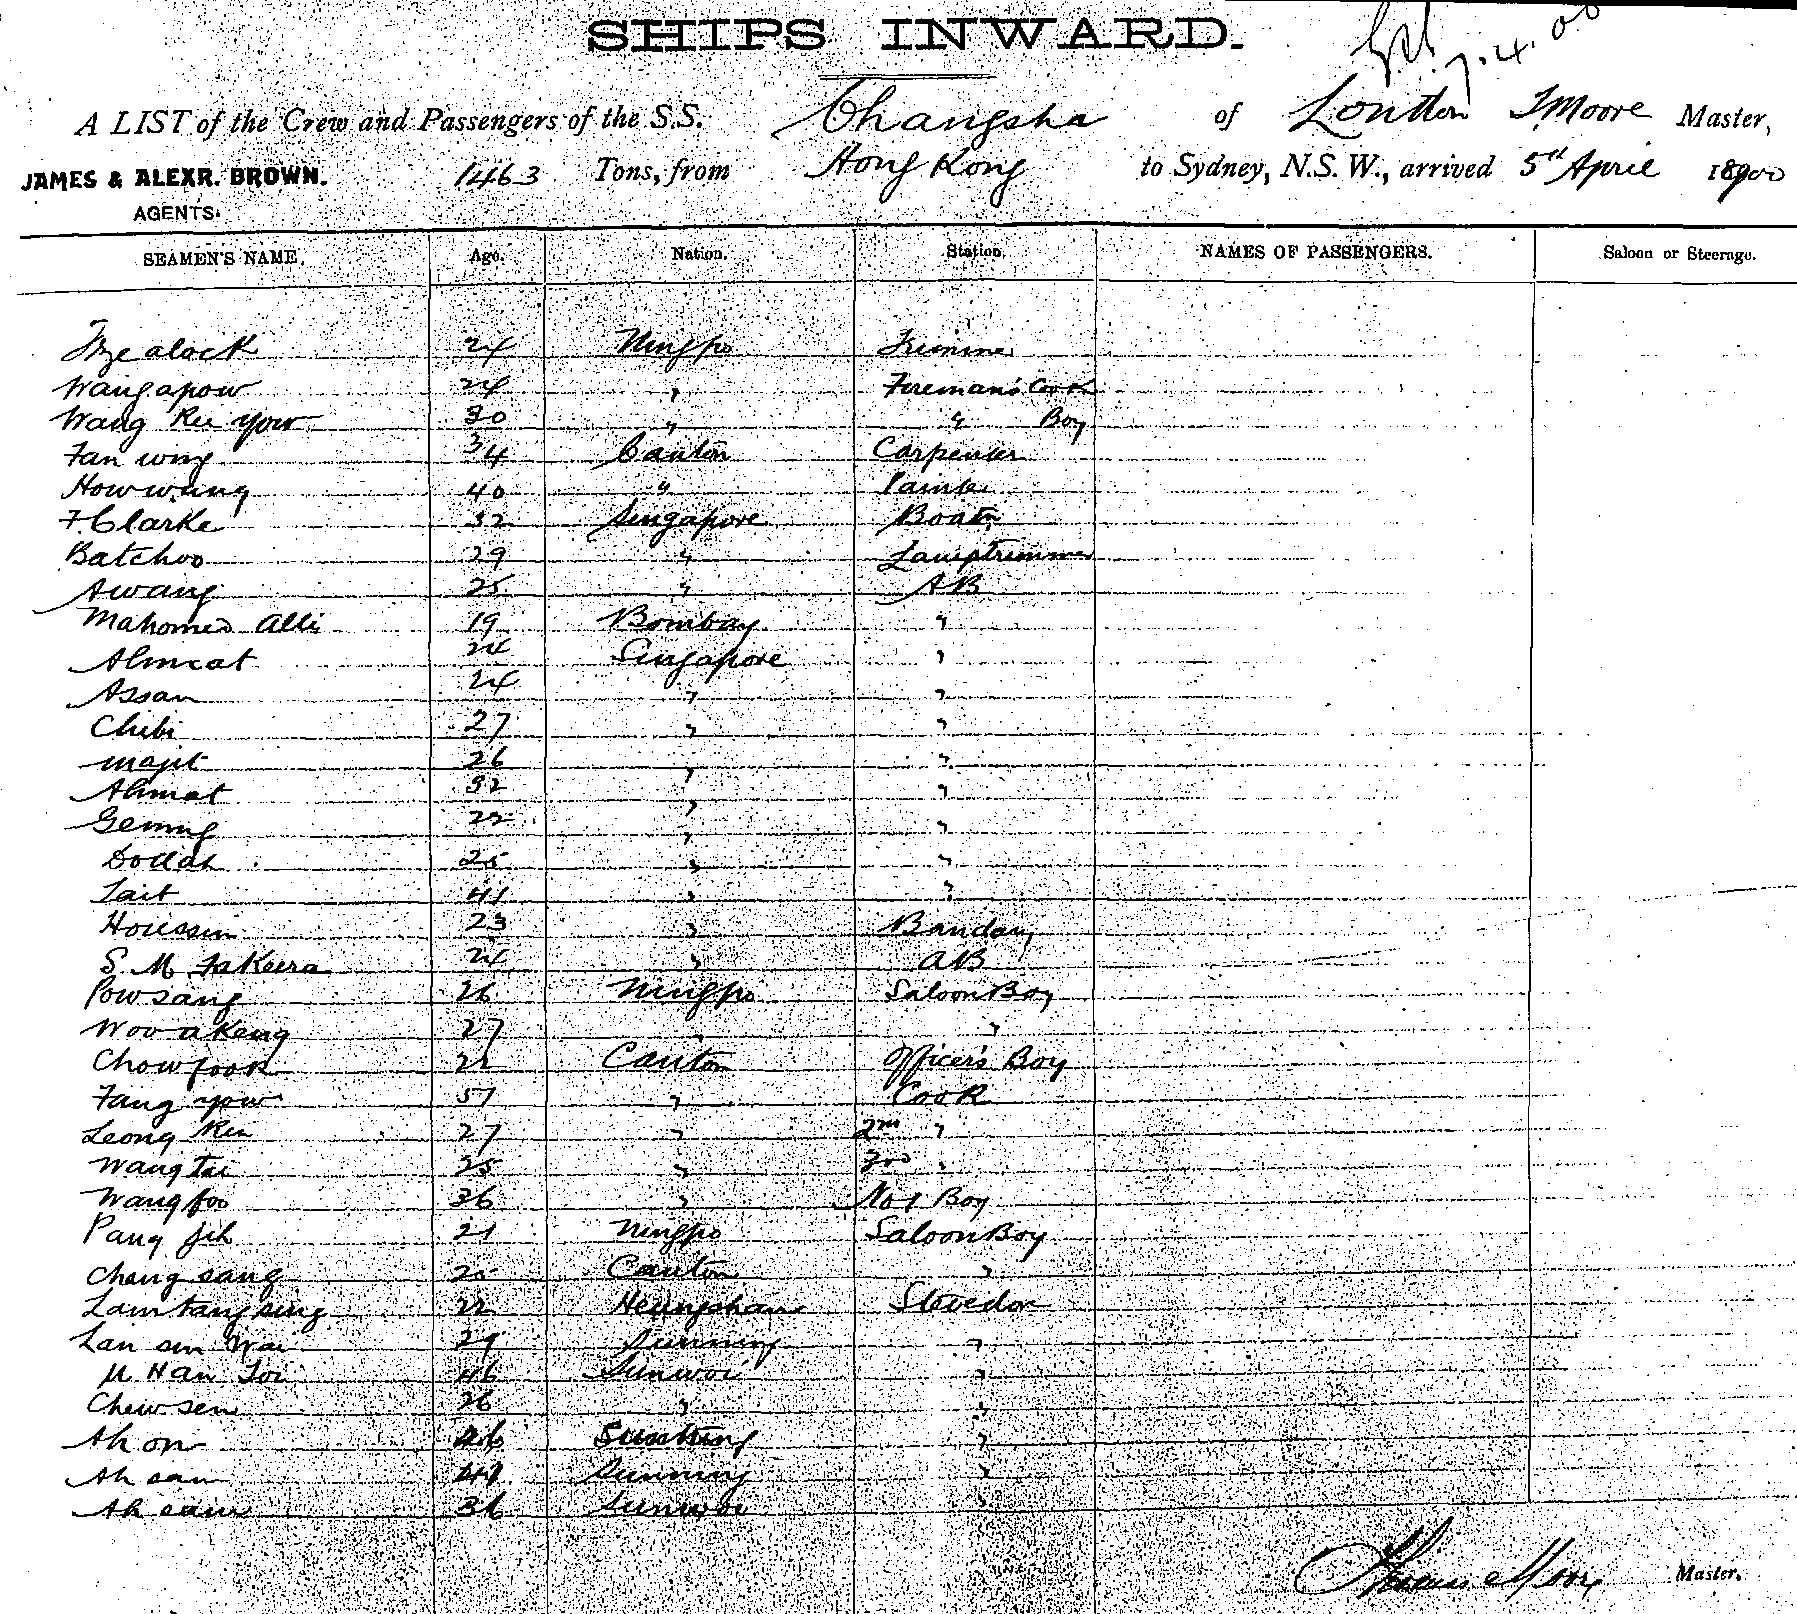 SHIPS INWARD.
7.4.00
A LIST of the Crew and Passengers of the S.S. Changsha of London T. Moore Master,
JAMES & ALEXR. BROWN. 1463 Tons, from Hong Kong to Sydney, N.S.W., arrived 5th April 18900
AGENTS.
SEAMEN'S NAME. Age. Nation. Station. NAMES OF PASSENGERS. Saloon or Steerage.
24 Ningpo Trimmer
Wang apow 24 " Fireman's Cook
Wang Kee yow 30 " " Boy
Fan wing 34 Canton Carpenter
How wang 40 " Painter
F. Clarke 32 Singapore Boatn
Batchoo 29 " Lamptrimmer
Awang 25 " AB
Mahomed Alli 19 Bombay "
Ahmat 24 Singapore "
Assan 24 " "
Chibi 27 " "
Majit 26 " "
Ahmat 32 " "
22 " "
Dollah 25 " "
Tait 41 " "
Houssin 23 "
S. M. Fakeera 24 " AB
Pow sang 26 Ningpo Saloon Boy
Woo a Keng 27 " "
Chow fook 22 Canton Officer's Boy
Fang yow 51 " Cook
Leong Kee 27 " 2nd "
Wang Tai 25 " 3rd "
Wang foo 36 " No 1 Boy
Pang 21 Ningpo Saloon Boy
Cheng sang 20 Canton "
Lam tang sing 22 Heungshan Stevedor
Lan sun Wai 29 Sunning "
46 Sunwoi "
Chew sen 26 " "
Ah on 46 Sunning "
Ah san Sunning "
Ah sam 36 Sunwoi "
Thomas Moore Master.